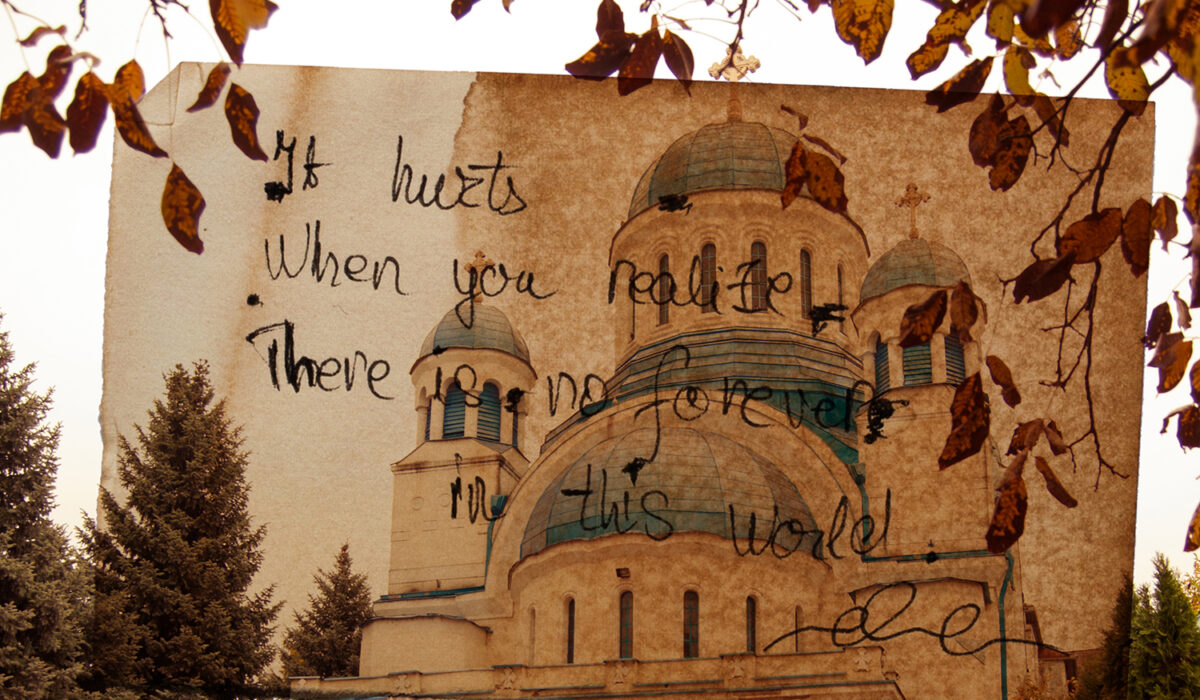 It hurts
When you realize
There is no forever
in this world